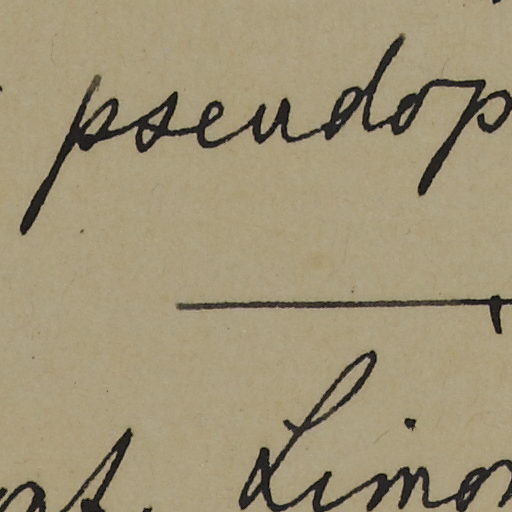 pseudop
Limon